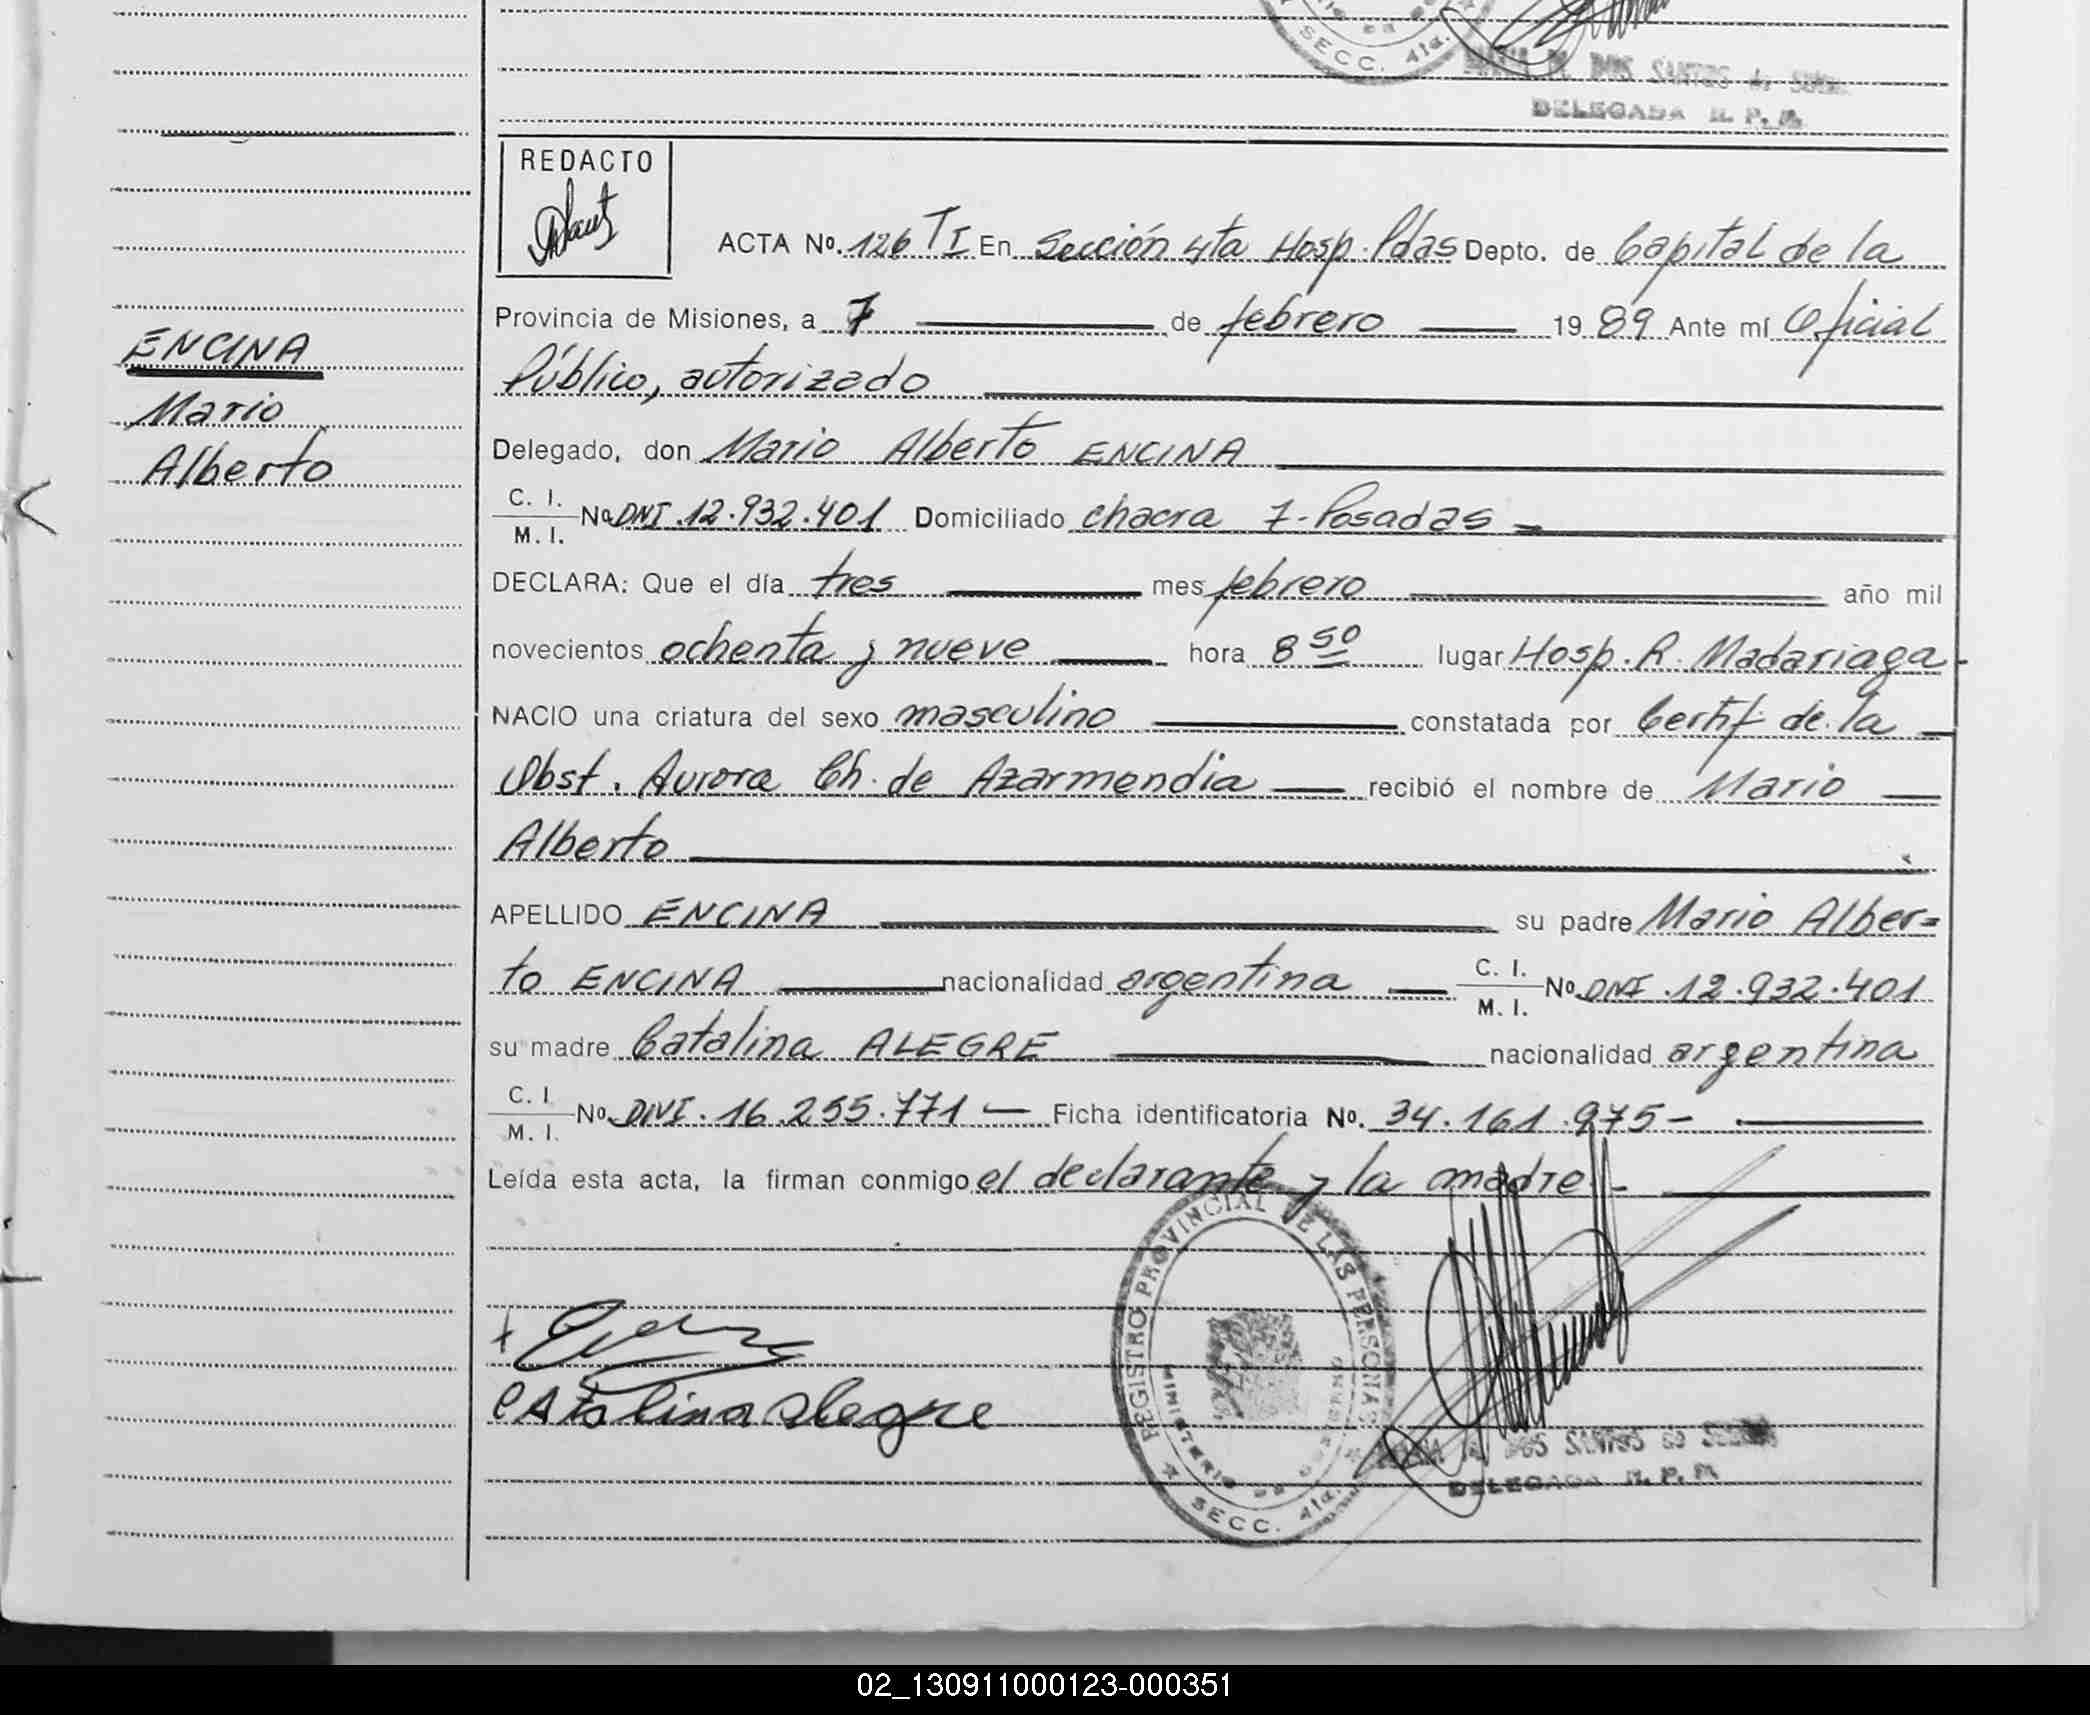 SECC. 4ta.
DOS SANTOS de
DELEGADA R. P. P.
REDACTO
ACTA No. 126 TI En Sección 4ta Hosp. Pdas Depto. de Capital de la
Provincia de Misiones, a 7 de febrero 1989 Ante mí Oficial
Público, autorizado
ENCINA
Mario
Alberto
Delegado, don Mario Alberto ENCINA
C. I.
M. I. No DNI. 12.932.401 Domiciliado chacra 7-Posadas
DECLARA: Que el día tres mes febrero año mil
novecientos ochenta y nueve hora 8 50 lugar Hosp. R. Madariaga-
NACIO una criatura del sexo masculino constatada por Certif de la
Obst. Aurora Ch. de Azarmendia recibió el nombre de Mario
Alberto
APELLIDO ENCINA su padre Mario Alber=
to ENCINA nacionalidad argentina C. I. M. I. No. DNI .12.932.401
su madre Catalina ALEGRE nacionalidad argentina
C. I. M. I. No. DNI. 16.255.771 — Ficha identificatoria No. 34.161.975-
Leída esta acta, la firman conmigo el declarante y la madre.-
Catalina Alegre
REGISTRO PROVINCIAL DE LAS PERSONAS
MINISTERIO DE GOBIERNO
SECC. 4ta.
DOS SANTOS de
DELEGADA R. P. P.
02_130911000123-000351